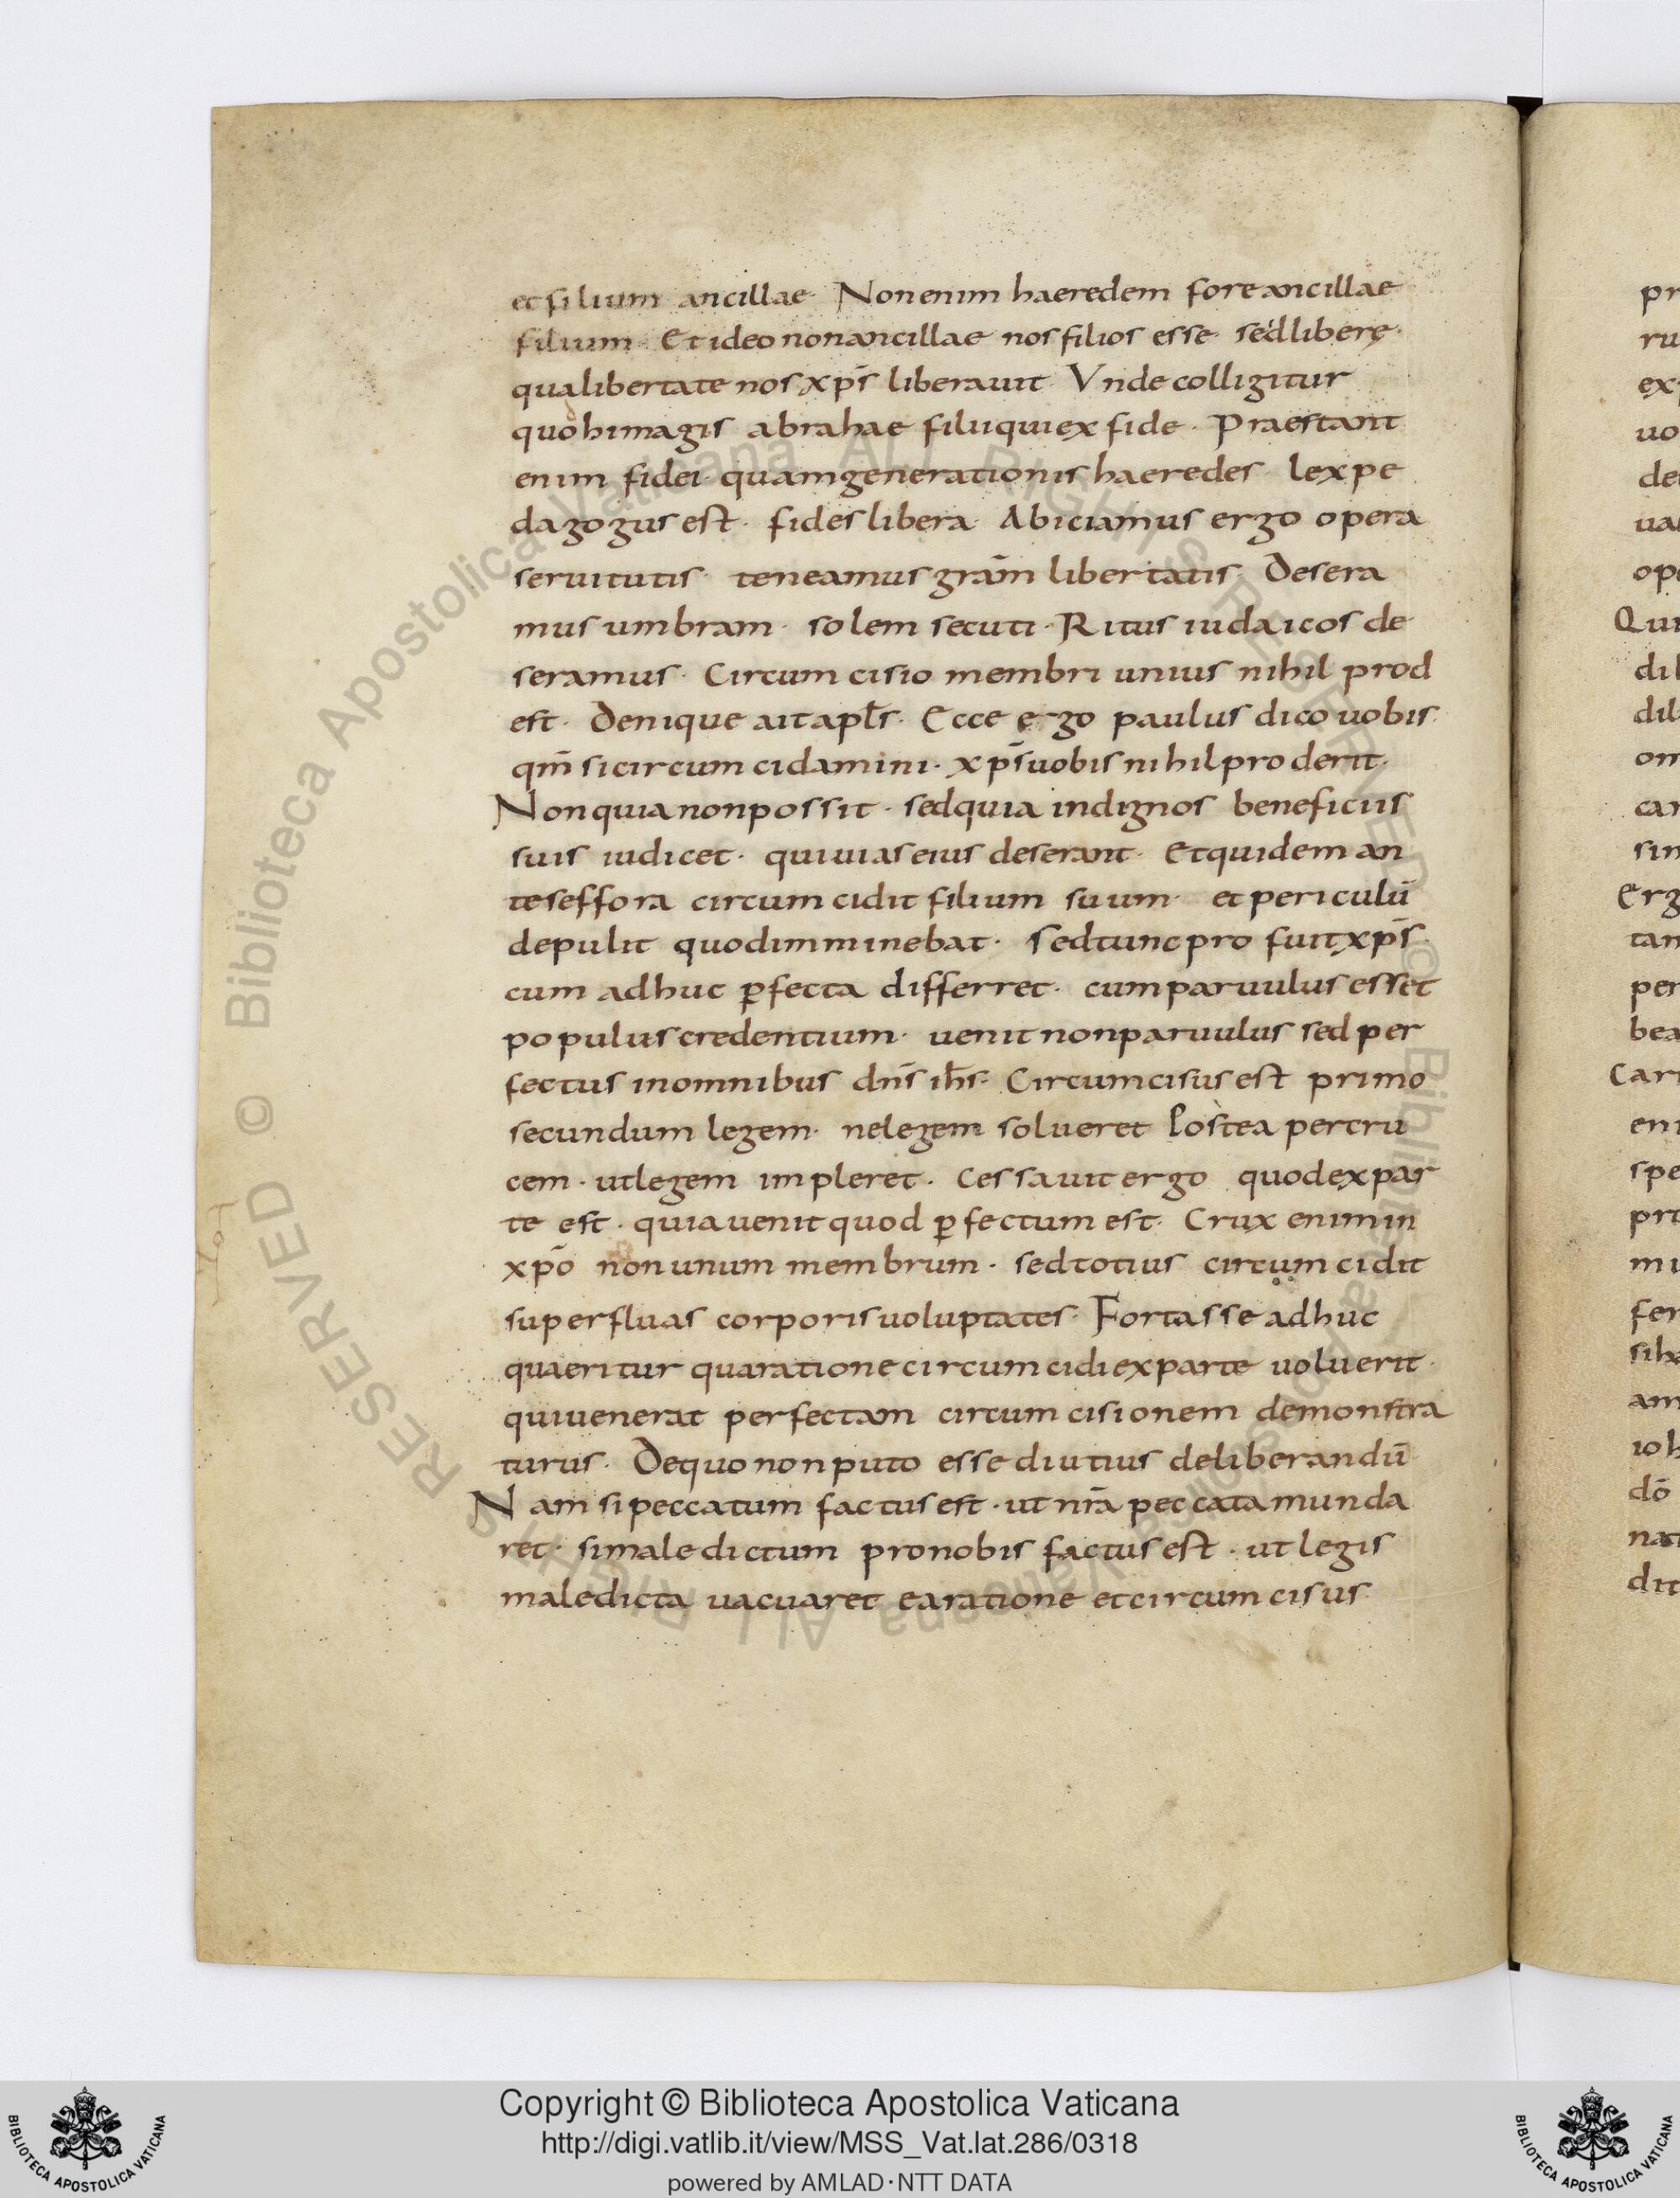 et filium ancillae· Non enim haeredem fore ancillae
filium· Et ideo non ancillae nos filios esse· sed liberę·
qua libertate nos xp̄s liberauit· Vnde colligitur
quod hi magis abrahae filii qui ex fide· Praestant
enim fidei· quam generationis haeredes· lex pe
dagogus est· fides libera· Abiciamus ergo opera
seruitutis· teneamus grām libertatis· Desera
mus umbram· solem secuti· Ritus iudaicos de
seramus· Circumcisio membri unius nihil prod
est· Denique ait apl̄s· Ecce ergo paulus dico uobis·
qm̄ si circumcidamini· xp̄s uobis nihil proderit·
Non quia non possit· sed quia indignos beneficiis
suis iudicet· qui uias eius deserant· Et quidem an
te seffora circumcidit filium suum· et periculū
depulit quod imminebat· sed tunc profuit xp̄s·
cum adhuc ꝑfecta differret· cum paruulus esset
populus credentium· uenit non paruulus sed per
fectus in omnibus dn̄s ih̄s· Circumcisus est primo
secundum legem· ne legem solueret Postea per cru
cem· ut legem impleret· Cessauit ergo quod ex par
te est· quia uenit quod ꝑfectum est· Crux enim in
xp̄o non unum membrum· sed totius circumcidit
superfluas corporis uoluptates· Fortasse adhuc
quaeritur qua ratione circumcidi ex parte uoluerit·
qui uenerat perfectam circumcisionem demonstra
turus· De quo non puto esse diutius deliberandū
Nam si peccatum factus est· ut nr̄a peccata munda
ret· si maledictum pro nobis factus est· ut legis
maledicta uacuaret ea ratione et circumcisus
pr
ru
ex
uo
de
ua
ope
Qui
dil
dil
om
car
sin
Erg
tan
per
bea
Cari
eni
spe
pro
mi
fer
am
ioh
dō
nat
dit
RESERVED © Biblioteca Apostolica Vaticana ALL RIGHTS RESERVED © Biblioteca Apostolica Vaticana ALL RIGHTS
Copyright © Biblioteca Apostolica Vaticana
http://digi.vatlib.it/view/MSS_Vat.lat.286/0318
powered by AMLAD·NTT DATA
BIBLIOTECA APOSTOLICA VATICANA
BIBLIOTECA APOSTOLICA VATICANA